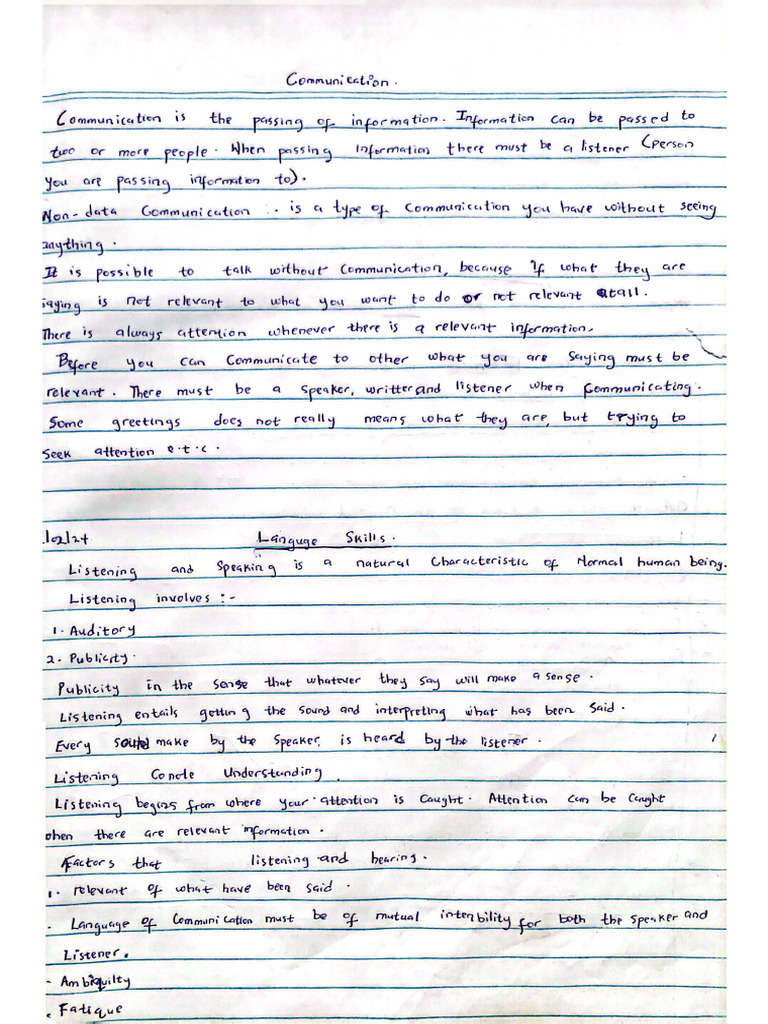 Communication.
Communication is the passing of information. Information can be passed to
two or more people. When passing information there must be a listener (person
you are passing information to).
Non-data Communication :. is a type of communication you have without seeing
anything.
It is possible to talk without communication, because if what they are
saying is not relevant to what you want to do or not relevant atall.
There is always attention whenever there is a relevant information.
Before you can communicate to other, what you are saying must be
relevant. There must be a speaker, writter and listener when communicating.
Some greetings does not really means what they are, but trying to
seek attention e.t.c.
/02/24 Languge Skills.
Listening and speaking is a natural characteristic of Normal human being.
Listening involves :-
1. Auditory
2. Publicity.
Publicity in the sense that whatever they say will make a sense.
Listening entails getting the sound and interpreting what has been said.
Every sound make by the speaker, is heard by the listener.
Listening Conote Understanding.
Listening begins from where your attention is caught. Attention can be caught
when there are relevant information.
Factors that listening and hearing.
1. relevant of what have been said.
- Language of communication must be of mutual interbility for both the speaker and
Listener.
- Ambiquilty
. Fatique